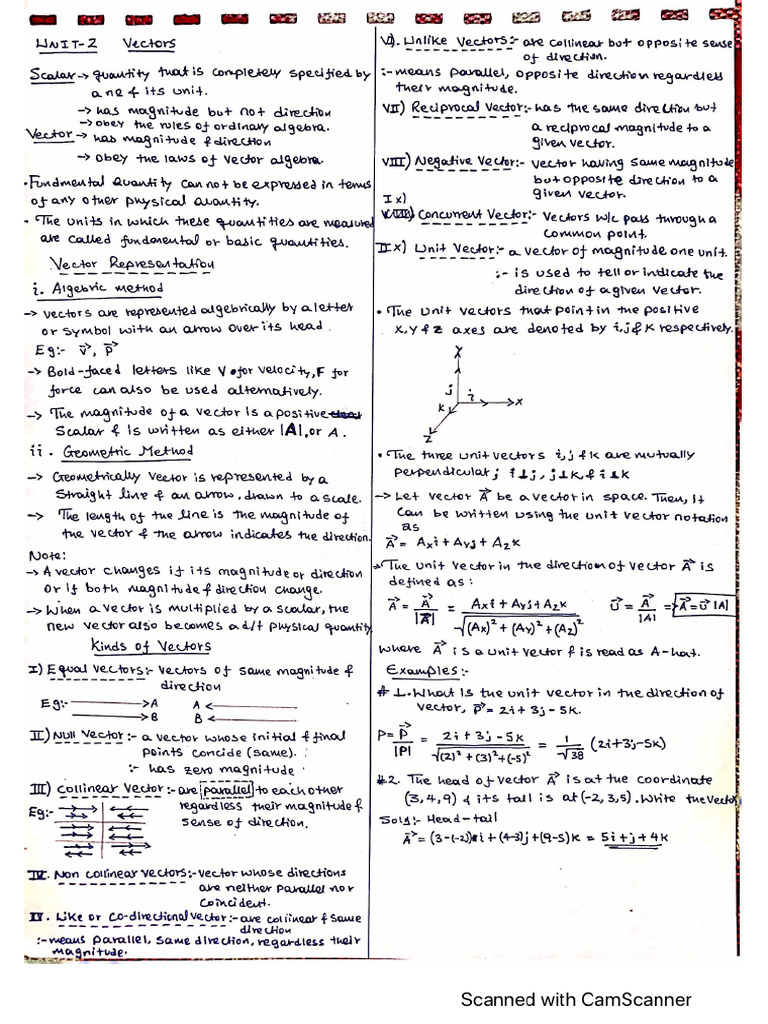 UNIT-2 Vectors
Scalar → quantity that is completely specified by
a ne & its unit.
→ has magnitude but not direction
→ obey the rules of ordinary algebra.
Vector → has magnitude & direction
→ obey the laws of vector algebra.
• Fundmental Quantity can not be expressed in terms
of any other physical Quantity.
• The units in which these quantities are measured
are called fundmental or basic quantities.
Vector Representation
i. Algebric method
→ vectors are represented algebrically by a letter
or symbol with an arrow over its head.
Eg:- V⃗, P⃗
→ Bold-faced letters like V for velocity, F for
force can also be used alternatively.
→ The magnitude of a vector is a positive
Scalar & is written as either |A|, or A.
ii. Geometric Method
→ Geometrically vector is represented by a
straight line & an arrow, drawn to a scale.
→ The length of the line is the magnitude of
the vector & the arrow indicates the direction.
Note:
→ A vector changes if its magnitude or direction
or if both magnitude & direction change.
→ When a vector is multiplied by a scalar, the
new vector also becomes a d/t physical quantity
Kinds of Vectors
I) Equal vectors:- vectors of same magnitude &
direction
Eg:- → A A ←
→ B B ←
II) Null Vector:- a vector whose initial & final
points concide (same).
:- has zero magnitude.
III) Collinear Vector:- are parallel to each other
regardless their magnitude &
Eg:-
sense of direction.
IV. Non collinear vectors:- vector whose directions
are neither parallel nor
coincident.
IV. Like or Co-directional vector:- are collinear & same
direction
:- means parallel, same direction, regardless their
magnitude.
VI). Unlike Vectors:- are collinear but opposite sense
of direction.
:- means parallel, opposite direction regardless
their magnitude.
VII) Reciprocal Vector:- has the same direction but
a reciprocal magnitude to a
given vector.
VIII) Negative Vector:- vector having same magnitude
but opposite direction to a
given vector.
Ix)
Concurrent Vector:- vectors w/c pass through a
common point.
IIx) Unit Vector:- a vector of magnitude one unit.
:- is used to tell or indicate the
direction of a given vector.
• The unit vectors that point in the positive
x, y & z axes are denoted by i, j & k respectively.
Y
j i → X
K
Z
• The three unit vectors i, j & k are mutually
perpendicular; i⊥j, j⊥k, & i⊥k
→ Let vector A⃗ be a vector in space. Then, It
can be written using the unit vector notation
as
A⃗ = Axi + Ayj + Azk
→ The unit vector in the direction of vector A⃗ is
defined as:
A⃗ = A⃗/|A⃗| = Axi + Ayj + Azk / √(Ax)² + (Ay)² + (Az)² U⃗ = A⃗/|A| => A⃗ = U⃗ |A|
where A⃗ is a unit vector & is read as A-hat.
Examples:-
# 1. What is the unit vector in the direction of
vector, P⃗ = 2i + 3j - 5k.
P = P⃗/|P| = 2i + 3j - 5k / √(2)² + (3)² + (-5)² = 1/√38 (2i + 3j - 5k)
#2. The head of vector A⃗ is at the coordinate
(3, 4, 9) & its tail is at (-2, 3, 5). Write the vector
Soln:- Head-tail
A⃗ = (3-(-2))i + (4-3)j + (9-5)k = 5i + j + 4k
Scanned with CamScanner